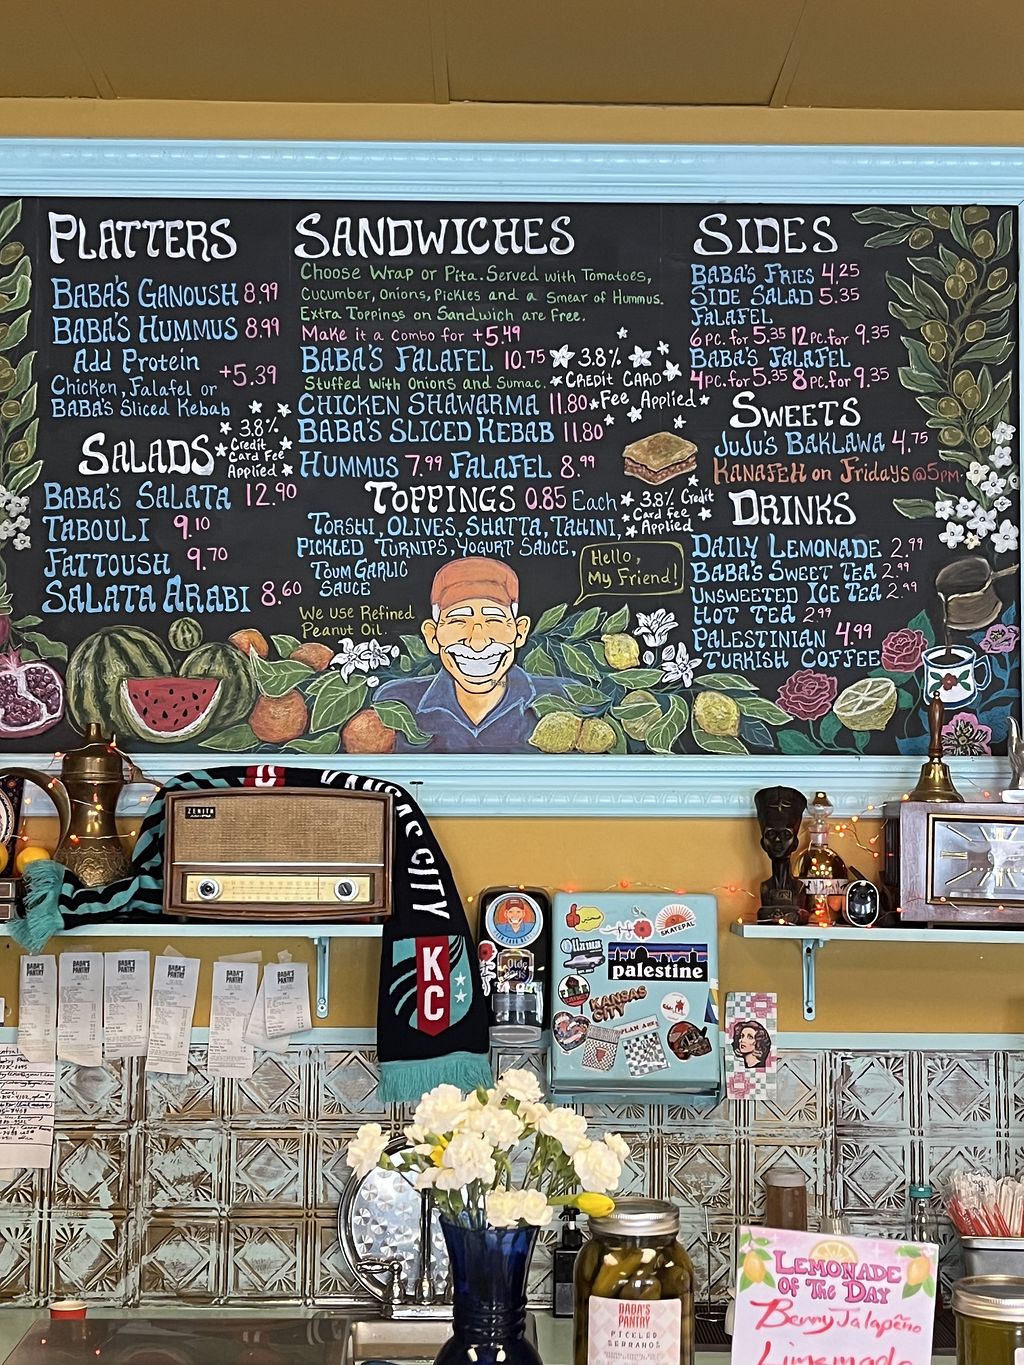 PLATTERS
BABA'S GANOUSH 8.99
BABA'S HUMMUS 8.99
Add Protein +5.39
Chicken, Falafel or
BABA'S Sliced Kebab
3.8%
Credit
Card Fee
Applied
SALADS
BABA'S SALATA 12.90
TABOULI 9.10
FATTOUSH 9.70
SALATA ARABI 8.60
SANDWICHES
Choose Wrap or Pita. Served with Tomatoes,
Cucumber, Onions, Pickles and a Smear of Hummus.
Extra Toppings on Sandwich are Free.
Make it a Combo for +5.49
BABA'S FALAFEL 10.75
Stuffed with Onions and Sumac.
CHICKEN SHAWARMA 11.80
BABA'S SLICED KEBAB 11.80
HUMMUS 7.99 FALAFEL 8.99
3.8%
CREDIT CARD
Fee Applied
TOPPINGS 0.85 Each
TORSHI, OLIVES, SHATTA, TAHINI,
PICKLED TURNIPS, YOGURT SAUCE,
TOUM GARLIC
SAUCE
3.8% Credit
Card fee
Applied
We use Refined
Peanut Oil.
Hello,
My Friend!
SIDES
BABA'S FRIES 4.25
SIDE SALAD 5.35
FALAFEL
6 PC. for 5.35 12 PC. for 9.35
BABA'S FALAFEL
4 PC. for 5.35 8 PC. for 9.35
SWEETS
JUJU'S BAKLAWA 4.75
KANAFEH on Fridays @5pm.
DRINKS
DAILY LEMONADE 2.99
BABA'S SWEET TEA 2.99
UNSWEETED ICE TEA 2.99
HOT TEA 2.99
PALESTINIAN 4.99
TURKISH COFFEE
ZENITH
KANSAS CITY
KC
SKATEPAL
palestine
KANSAS
CITY
BABA'S
PANTRY
BABA'S
PANTRY
BABA'S
PANTRY
BABA'S
PANTRY
BABA'S
PANTRY
BABA'S
PANTRY
BABA'S
PANTRY
PICKLED
SERRANOS
LEMONADE
OF THE DAY
Berry Jalapeño
Limemad